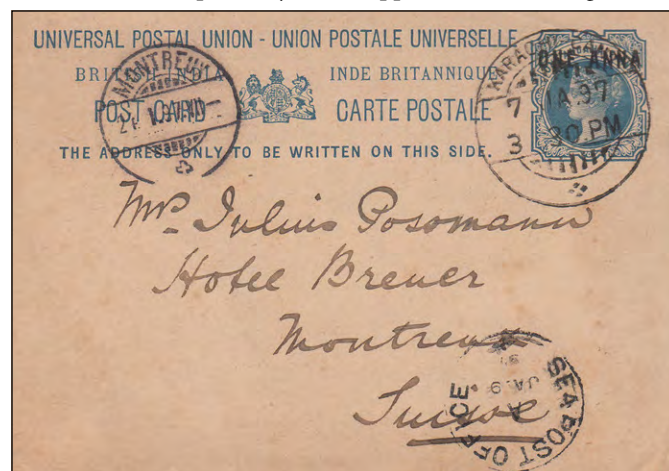 UNIVERSAL POSTAL UNION - UNION POSTALE UNIVERSELLE
BRITISH INDIA INDE BRITANNIQUE
POST CARD CARTE POSTALE
THE ADDRESS ONLY TO BE WRITTEN ON THIS SIDE.
ONE ANNA
KARACHI
7 JA.97
3 30 PM
MONTREUX
Mrs. Julius Posomann
Hotel Breuer
Montreux
Suisse
SEA POST OFFICE
A
JA.9